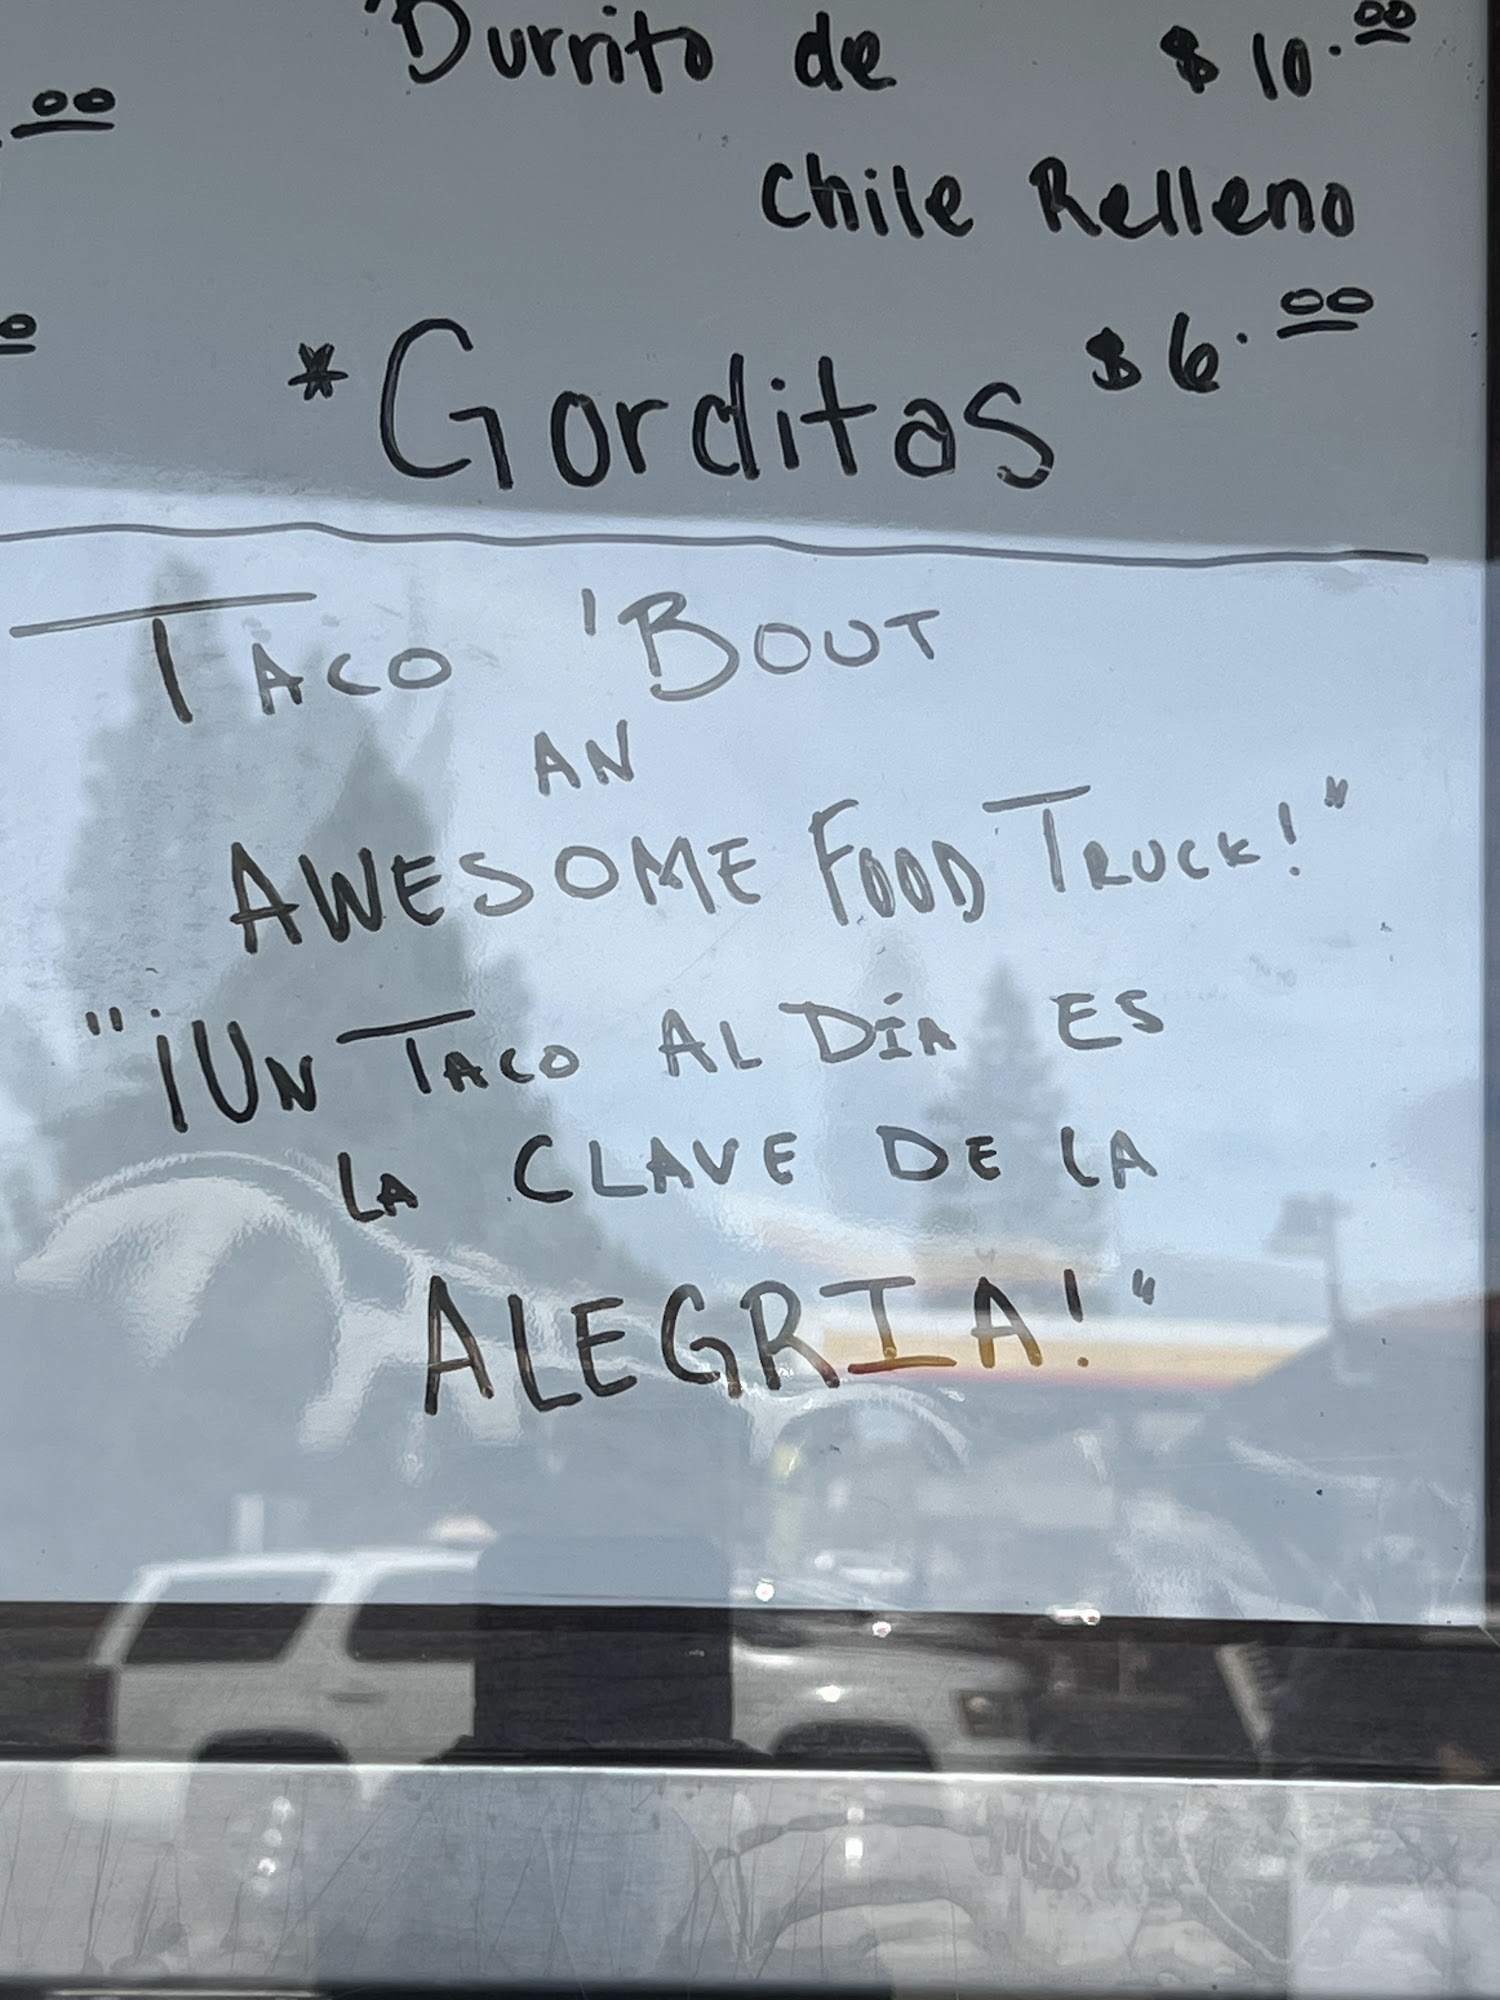 Burrito de $10.00
Chile Relleno
*Gorditas $6.00
TACO 'BOUT
AN
AWESOME FOOD TRUCK!"
"¡UN TACO AL DÍA ES
LA CLAVE DE LA
ALEGRIA!"